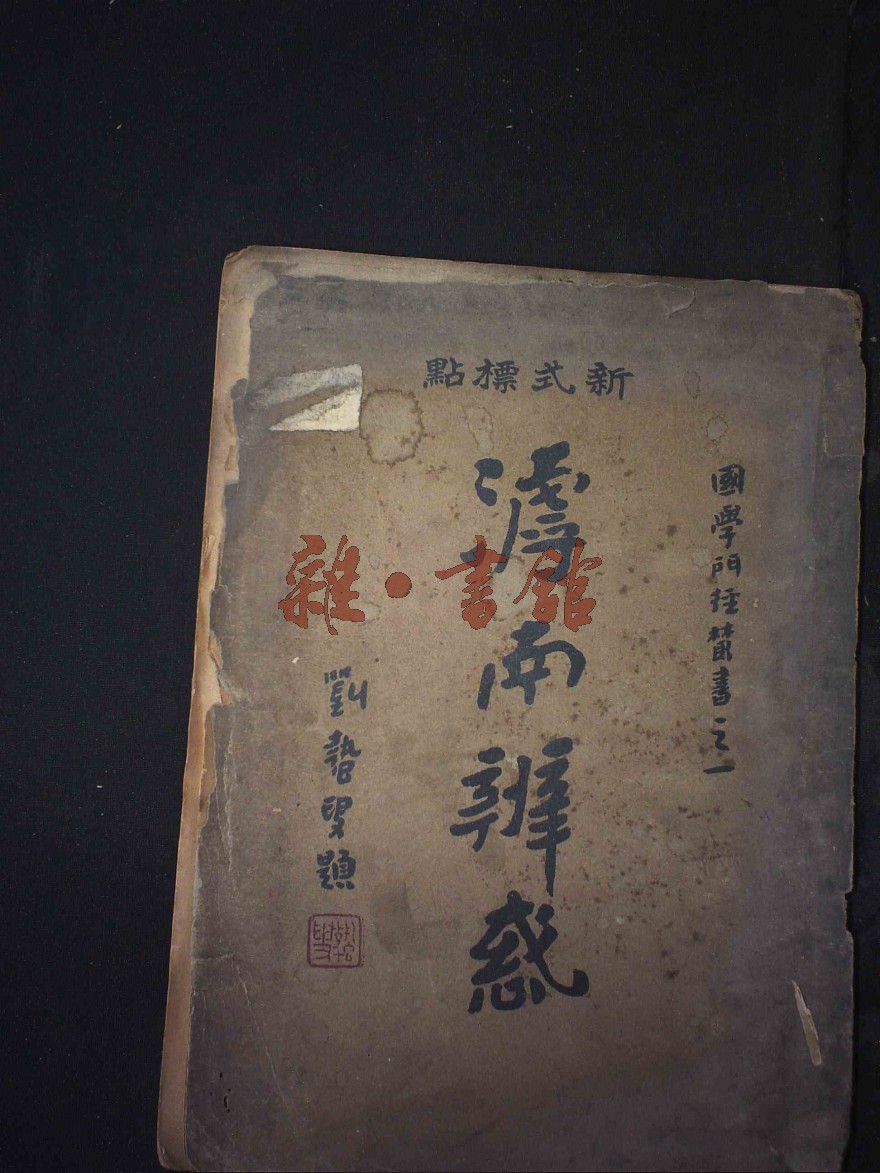 新式標點
國學門徑叢書之一
滹南辨惑
劉晳叟題
雜·書館